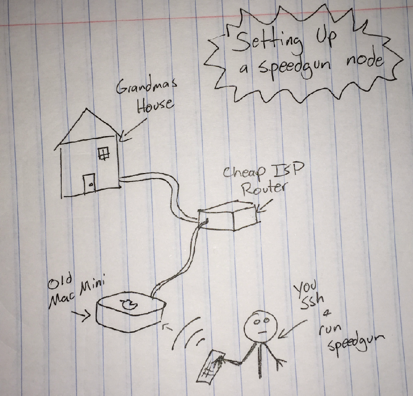 Setting Up
a speedgun node
Grandmas
House
Cheap ISP
Router
Old
Mac Mini
You
ssh
&
run
speedgun